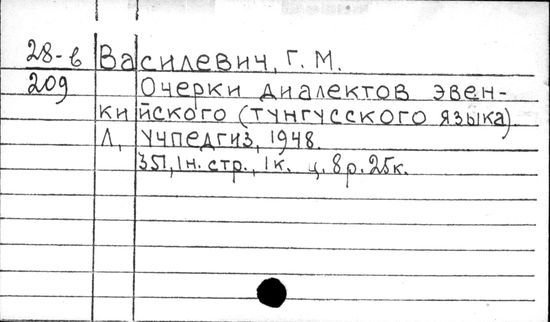 28-в Василевич, Г. М.
209 Очерки диалектов эвен-
кийского (тунгусского языка).
Л, Учпедгиз, 1948.
351, 1н. стр., 1к. ц. 8р. 25к.